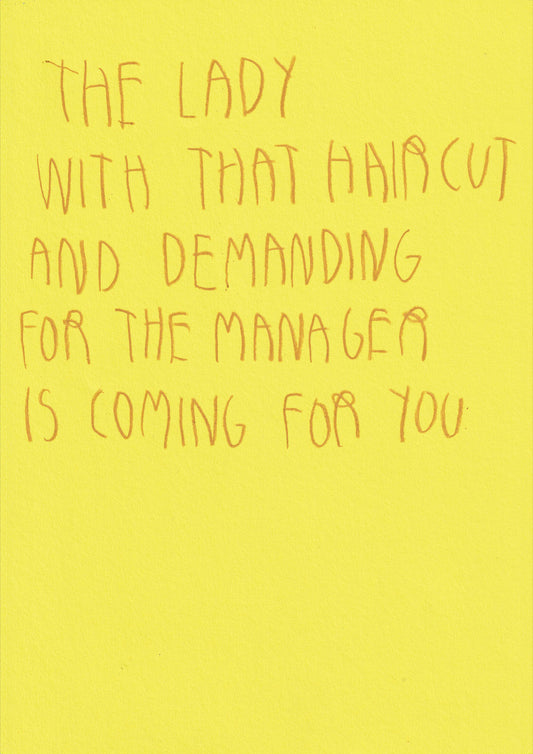 THE LADY
WITH THAT HAIRCUT
AND DEMANDING
FOR THE MANAGER
IS COMING FOR YOU